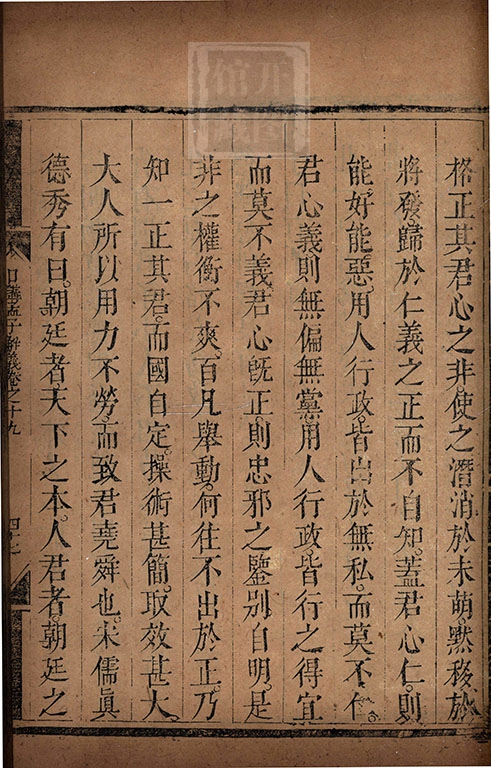 格正其君心之非使之潛消於未萌默移於
將發歸於仁義之正而不自知蓋君心仁則
能好能惡用人行政皆出於無私而莫不仁
君心義則無偏無黨用人行政皆行之得宜
而莫不義君心既正則忠邪之鑒別自明是
非之權衡不爽百凡舉動何往不出於正乃
知一正其君而國自定操術甚簡取效甚大
大人所以用力不勞而致君堯舜也宋儒真
德秀有曰朝廷者天下之本人君者朝廷之
孟子
之十九